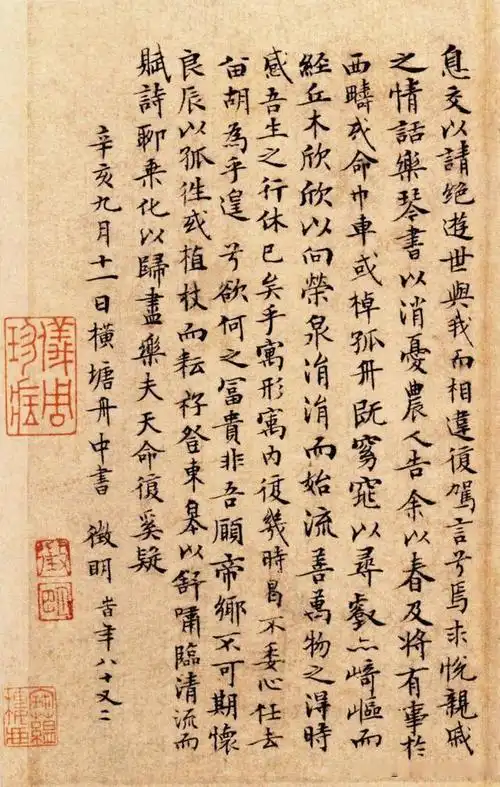 息交以請絕遊世與我而相違復駕言兮焉求悅親戚
之情話樂琴書以消憂農人告余以春及將有事於
西疇或命巾車或棹孤舟既窈窕以尋壑亦崎嶇而
經丘木欣欣以向榮泉涓涓而始流善萬物之得時
感吾生之行休已矣乎寓形寓內復幾時曷不委心任去
留胡為乎遑兮欲何之富貴非吾願帝鄉不可期懷
良辰以孤往或植杖而耘耔登東皋以舒嘯臨清流而
賦詩聊乘化以歸盡樂夫天命復奚疑
辛亥九月十一日橫塘舟中書 徵明 旹年八十又二
儀周珍藏
徵
明